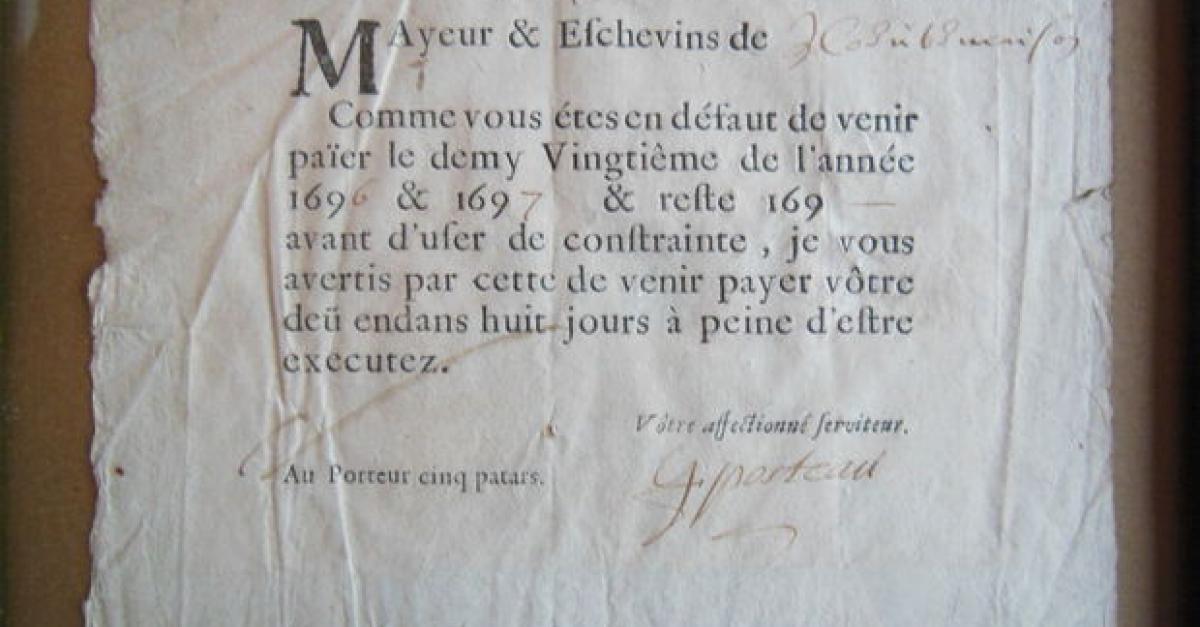 MAyeur & Eſchevins de
Comme vous étes en défaut de venir
païer le demy Vingtiême de l'année
1696 & 1697 & reſte 169 —
avant d'uſer de conſtrainte, je vous
avertis par cette de venir payer vôtre
deü endans huit jours à peine d'eſtre
executez.
Vôtre affectionné ſerviteur.
Au Porteur cinq patars.